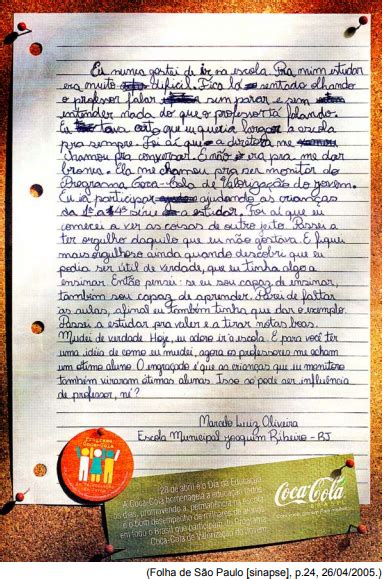 Eu nunca gostei de ir na escola. Pra mim estudar
era muito difícil. Fica lá sentado olhando
o professor falar sem parar e sem
entender nada do que o professor tá falando.
Eu tava certo que eu queria largar a escola
pra sempre. Foi aí que a diretora me
chamou pra conversar. E não era pra me dar
bronca. Ela me chamou pra ser monitor do
Programa Coca-Cola de Valorização do Jovem.
Eu ia participar ajudando as crianças
da 1ª a 4ª série a estudar. Foi aí que eu
comecei a ver as coisas de outro jeito. Passei a
ter orgulho daquilo que eu não gostava. E fiquei
mais orgulhoso ainda quando descobri que eu
podia ser útil de verdade, que eu tinha algo a
ensinar. Então pensei: se eu sou capaz de ensinar,
também sou capaz de aprender. Parei de faltar
as aulas, afinal eu também tinha que dar o exemplo.
Passei a estudar pra valer e a tirar notas boas.
Mudei de verdade. Hoje, eu adoro ir a escola. E para você ter
uma idéia de como eu mudei, agora os professores me acham
um ótimo aluno. O engraçado é que as crianças que eu monitoro
também viraram ótimos alunos. Isso só pode ser influência
de professor, né?
Marcelo Luiz Oliveira
Escola Municipal Joaquim Ribeiro - RJ
28 de abril é o Dia da Educação.
A Coca-Cola homenageia a educação todos
os dias, promovendo a permanência na escola
e o bom desempenho de milhares de alunos
em todo o Brasil que participam do Programa
Coca-Cola de Valorização do Jovem.
Coca-Cola
BRASIL
(Folha de São Paulo [sinapse], p.24, 26/04/2005.)